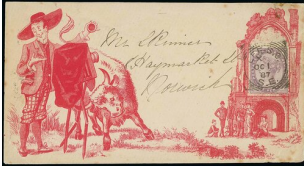 Mr Skinner
Haymarket
Norwich
OC 1
87